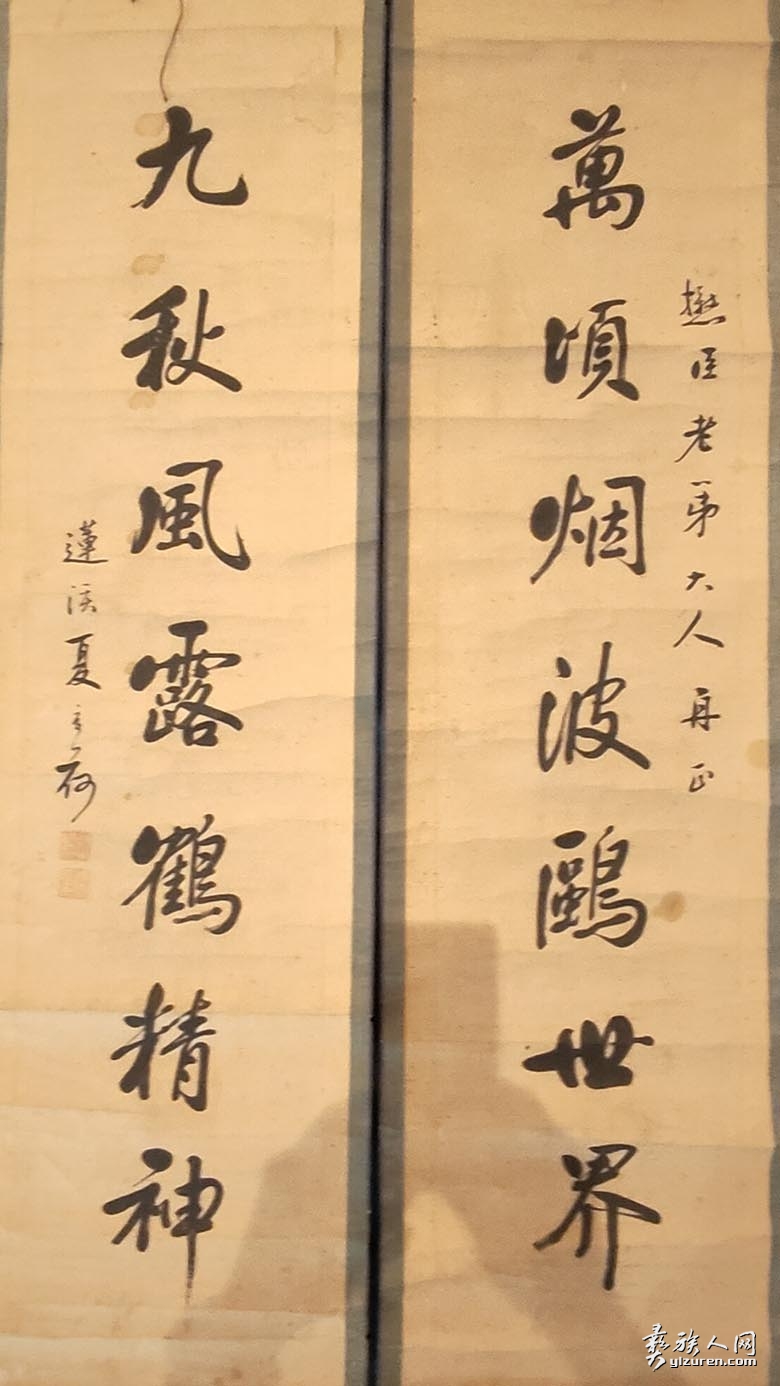 萬頃烟波鷗世界
懋臣老弟大人再正
九秋風露鶴精神
蓮溪夏
彝族人网
yizuren.com